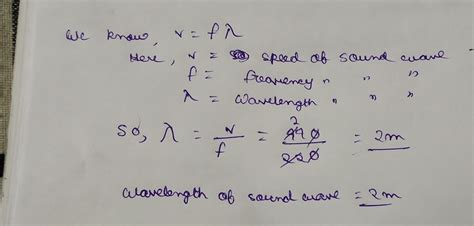 We know, v = f λ
Here, v = speed of sound wave
f = frequency " " "
λ = wavelength " " "
So, λ = v/f = 440/220 = 2m
wavelength of sound wave = 2m